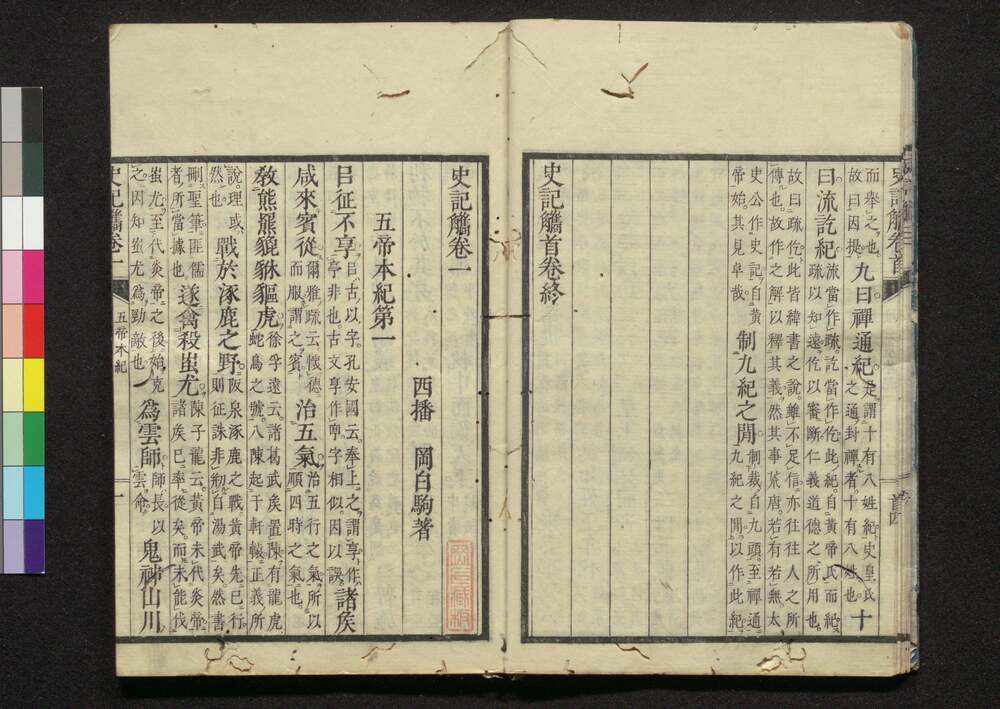 史記觿卷首
而舉之也
故曰因提
九曰禪通紀
是謂十有八姓紀史皇氏
之通封禪者十有八姓也
十
曰流訖紀
流當作疏訖當作仡此紀自黃帝氏而紀
疏以知遠仡以審斷仁義道德之所用也
故曰疏仡此皆緯書之說雖不足信亦往往人之所
傳也故作之解以釋其義然其事荒唐若有若無太
史公作史記自黃
帝始其見卓哉
制九紀之閒
制裁自九頭至禪通
九紀之閒以作此紀
史記觿首卷終
史記觿卷一
西播 岡白駒著
五帝本紀第一
㠯征不享
㠯古以字孔安國云奉上之謂享作
亭非也古文享作亯字相似因以誤
諸矦
咸來賓從
爾雅疏云懷德
而服謂之賓
治五氣
治五行之氣所以
順四時之氣也
教熊羆貔貅貙虎
徐孚遠云諸葛武矦置陳有龍虎
蛇鳥之號八陳起于軒轅正義所
說理或
然也
戰於涿鹿之野
阪泉涿鹿之戰黃帝先已行
則征誅非剏自湯武矣然書
刪聖筆匪儒
者所當據也
遂禽殺蚩尤
陳子龍云黃帝未代炎帝
諸矦已率從矣而未能伐
蚩尤至代炎帝之後始克
之因知蚩尤爲勁敵也
爲雲師
師長以
雲命
鬼神山川
史記觿卷一 五帝本紀 一